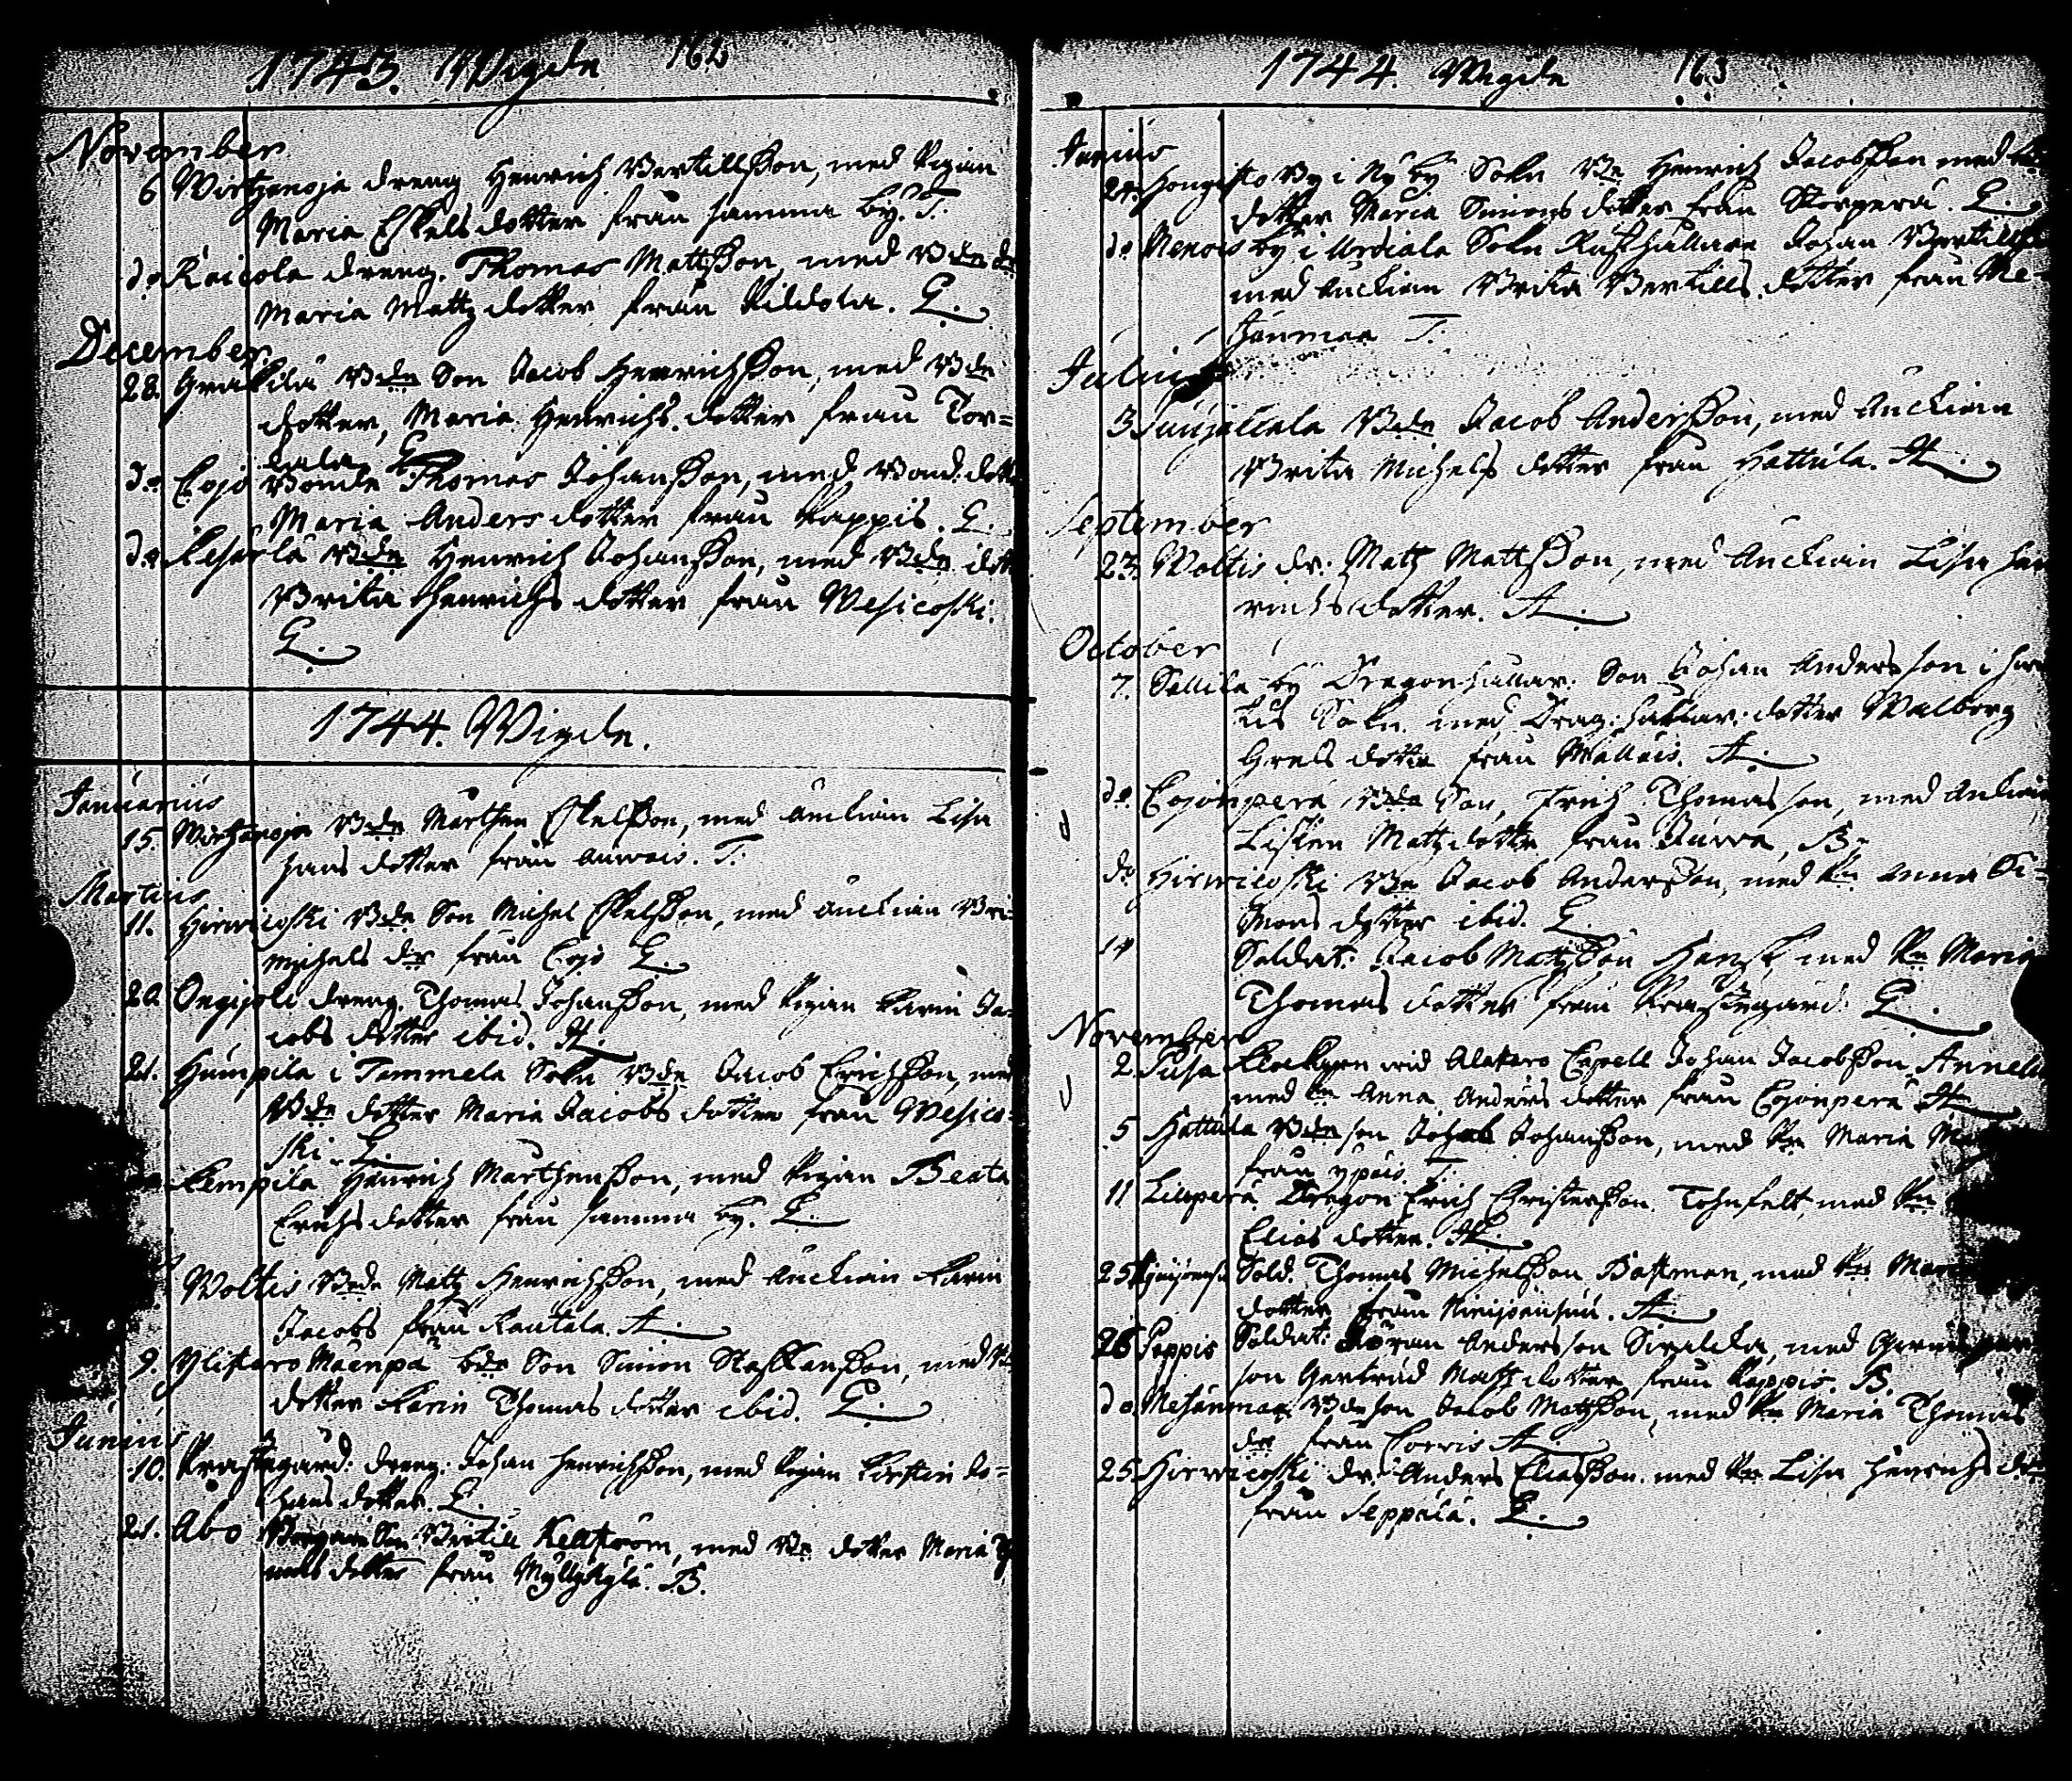 1743. Wigde 162
November
6 Wirtzenoja dreng Henrich Bertillsson, med Pigan
Maria Eskels dotter från samma by. T.
do Raicola dreng. Thomas Mattsson, med Bde dr
Maria Mattz dotter från Killola. E.
December
28. Gratkila Bde Son Jacob Henrichsson, med Bde
dotter, Maria Henrichs dotter från Tor=
tala E.
do Cojo Bonde Thomas Johansson, med Bond. dott
Maria Anders dotter från Kappis. E.
do Bde Henrich Johansson, med Bde dott
Brita Henrichs dotter från Wesicoski.
E.
1744. Wigde.
Januarius
15. Bde Marthen Eskelsson, med Änckian Lisa
Hans dotter från Anwais. T.
Martius
11. Hirwicoski Bde Son Michel Eskelsson, med Änckian Bri=
Michels dr från Cojo E.
20. Ongijoki dreng. Thomas Johansson, med Pigan Karin Ja=
cobs dotter ibid. A.
21. Humpila i Tammela Sokn Bde Jacob Erichsson, med
Bde dotter Maria Jacobs dotter från Wesico=
ski. E.
Kempila Henrich Marthensson, med Pigan Beata
Erichs dotter från samma by. E.
Woltis Bde Matz Henrichsson, med Änckian Karin
Jacobs från Rautala. A.
9. Ylistaro Mäenpä bde Son Simon Staffansson, med
dotter Karin Thomas dotter ibid. E.
Junius
10. Prästegård. dreng. Johan Henrichsson, med Pigan Kirstin Jo=
hans dotter. E.
21. Åbo Bertill Kellström, med Bde dotter Maria
dotter från Myllykylä. B.
1744. Wigde 163
Junius
24. Hongisto By i Nykby Sokn Bde Henrich Jacobsson med
dotter Maria Simons dotter från Storperä. E.
do Menois by i Urdiala Sokn Rusthållare Johan Bertills
med Änckian Brita Bertills dotter från Me=
hänmaa T.
Julius
3 Bde Jacob Andersson, med Änckian
Brita Michels dotter från Hattula. A.
September
23. Woltis dr. Matz Mattsson, med Änckian Lisa Hen
richs dotter. A.
October
7. Sallila by Dragonhållar. Son Johan Andersson i
Sokn. med Drag: hållar: dotter Walborg
Grels dotter från Mällais. A.
do Cojonperä Bde Son, Erich Thomasson, med Änckian
Lisken Matz dotter från Juwa, B.
do Hirwicoski Bde Jacob Andersson, med Pn Anna Si=
mons dotter ibid. E.
14 Soldat: Jacob Matzson Hansk, med Pn Maria
Thomas dotter från Prästegård. E.
November
2. Pusa Klockaren wid Alataro Capell Johan Jacobsson Annelin
med Anna Anders dotter från Cojonperä A.
5 Hattula Bde son Johansson, med Pn Maria
från Ypäis. T.
11 Leuperä. Dragon Erich Christersson. Tohnfelt, med Pn
Elias dotter. A.
25 Sold. Thomas Michelsson Bastman, med Pn
dotter från. A.
26 Peppis Soldat: Göran Andersson, med
son Gertrud Matz dotter från Kappis. B.
do Mehänmaa Bde son Jacob Matzson, med Pn Maria Thomas
dr från Corwis A.
25. Hirwicoski dr. Anders Eliasson. med Pn Lisa Henrichs dr
från Seppälä. E.